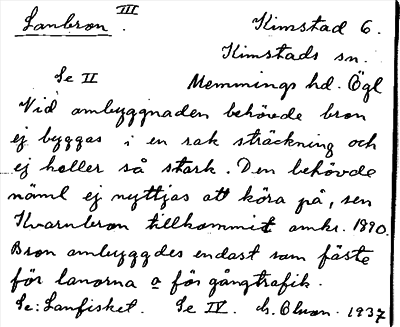 Lanbron III. Kimstad 6.
Kimstads sn.
Se II Memmings hd. Ögl
Vid ombyggnaden behövde bron
ej byggas i en rak sträckning och
ej heller så stark. Den behövde
näml ej nyttjas att köra på, sen
Kvarnbron tillkommit omkr. 1890.
Bron ombyggdes endast som fäste
för lanorna o för gångtrafik.
Se: Lanfisket. Se IV. 1937